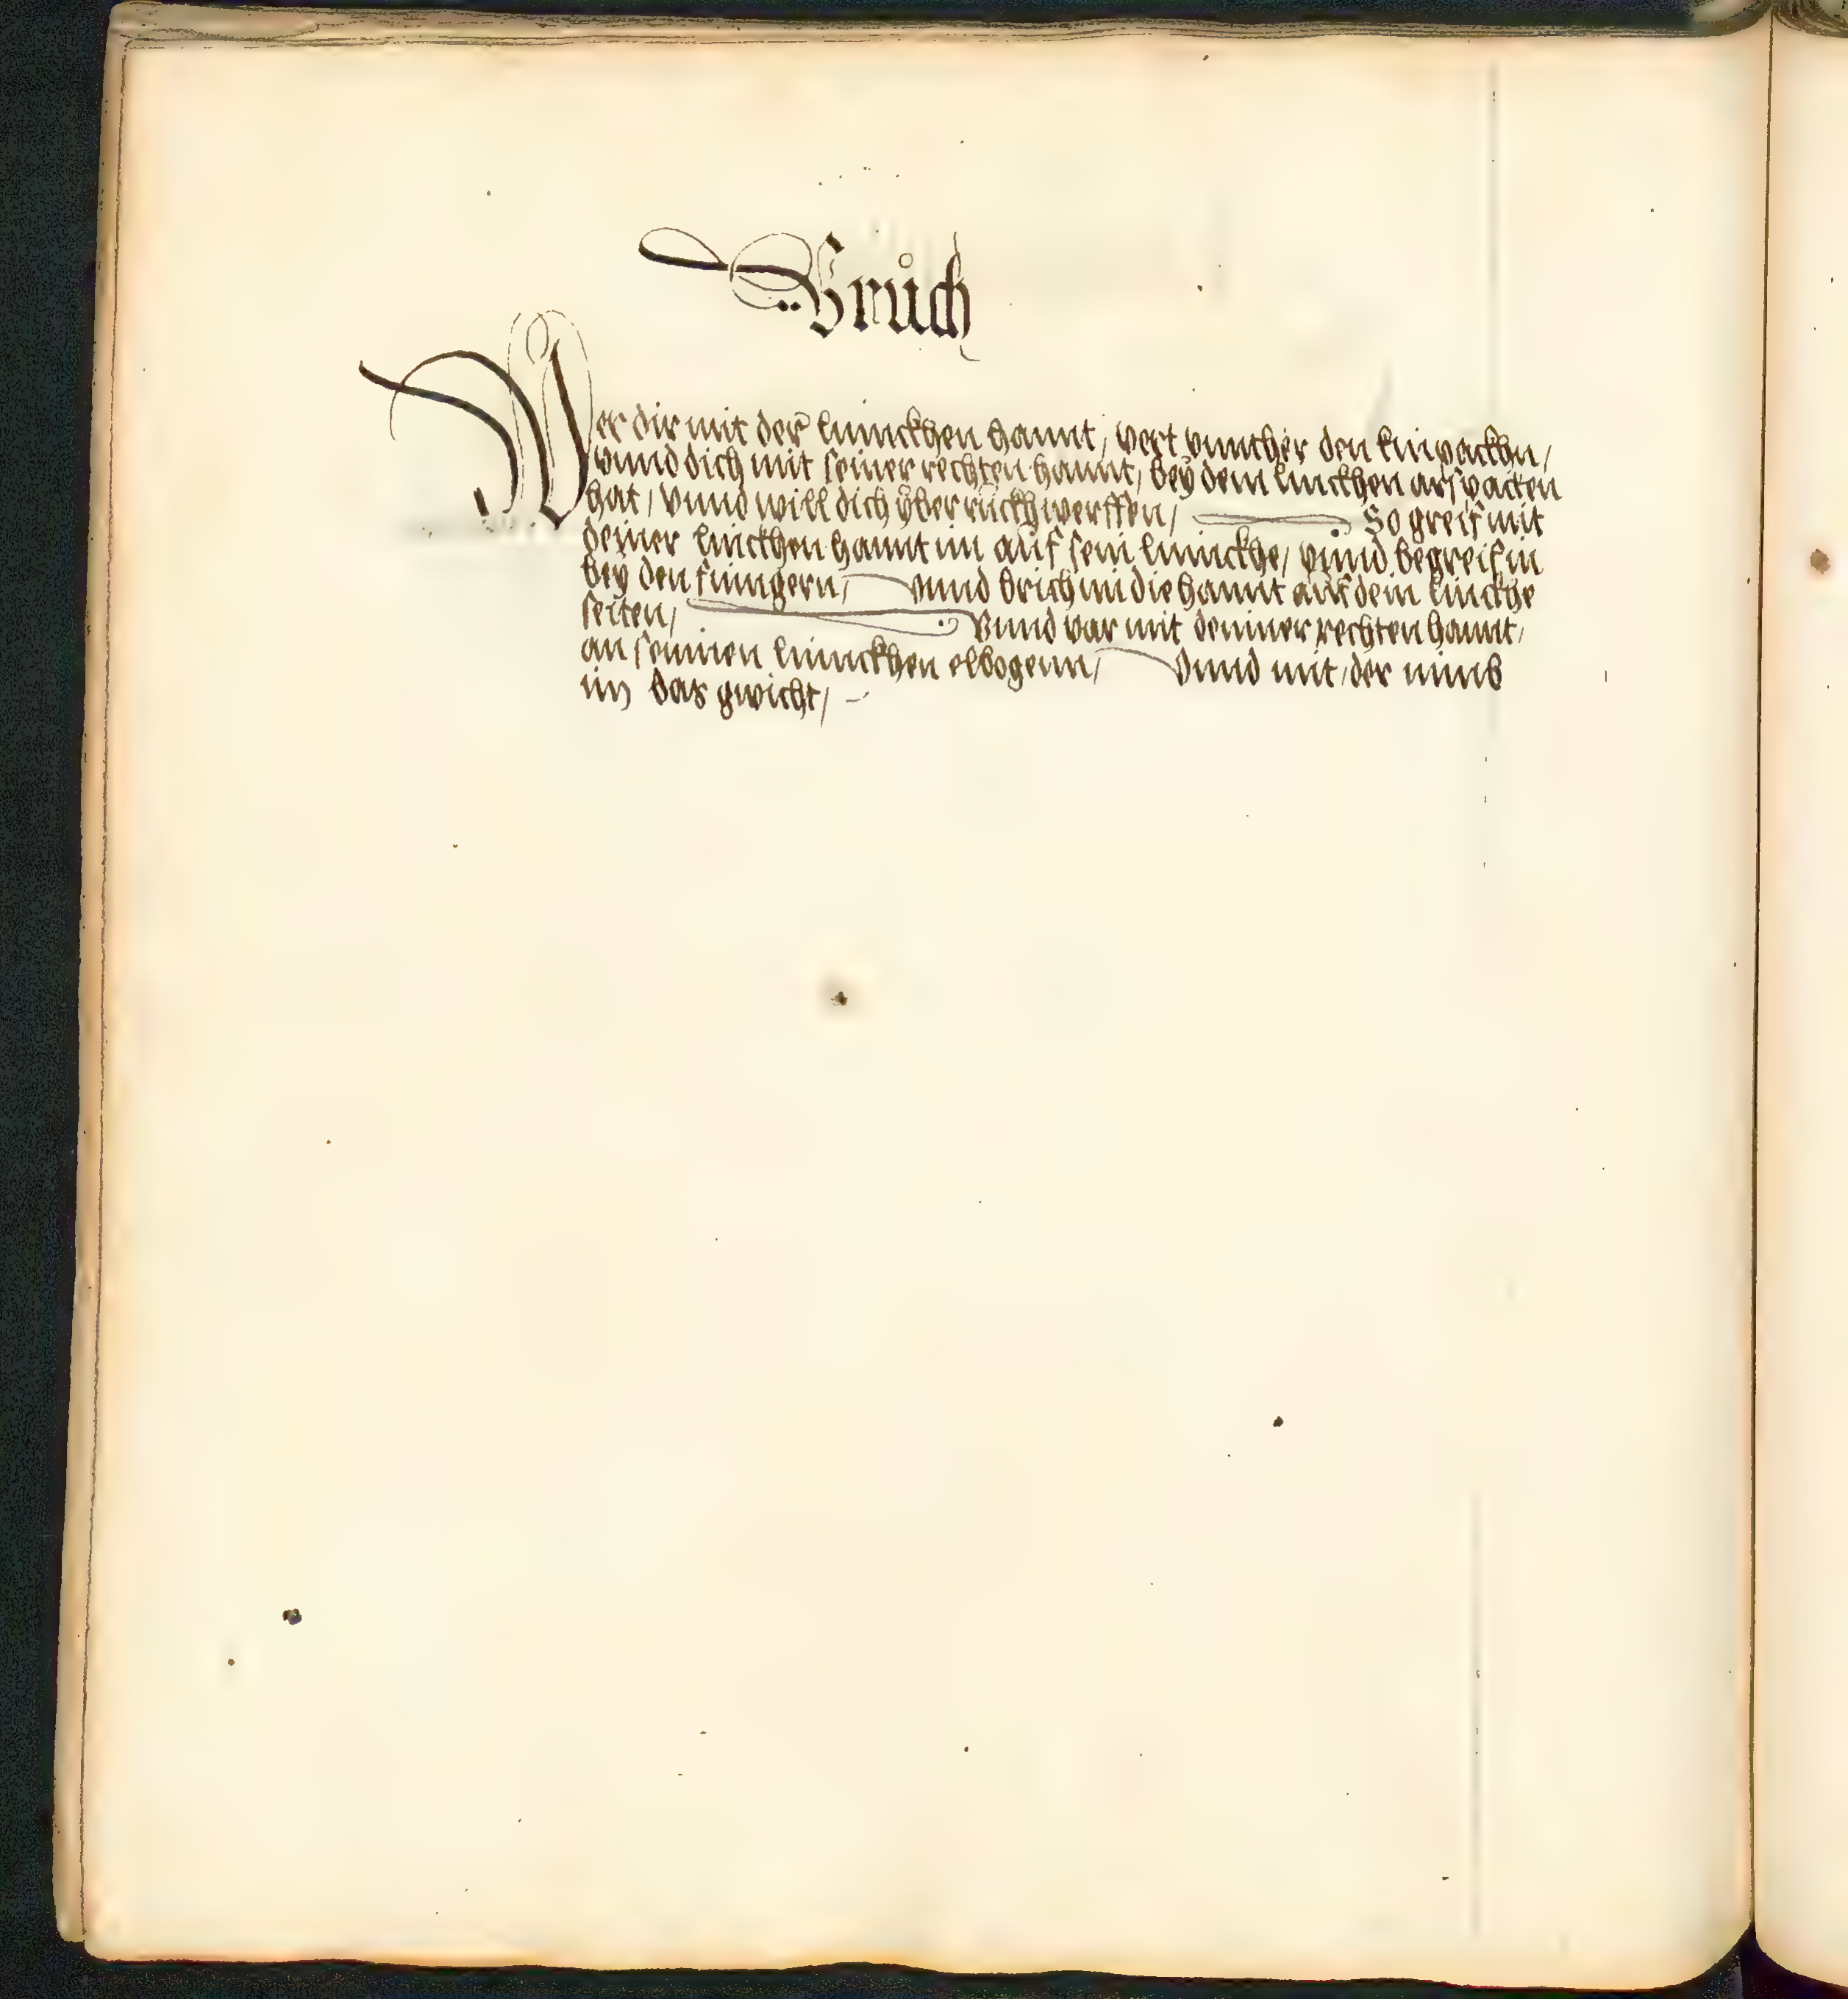 Brůch
Wer dir mit der linnckhen hannt, vert vnnther den kinpackhn /
vnnd dich mit seiner rechten hannt, beÿ dem linckhen arspacken
hat / vnnd will dich ÿber rückh werffen / So greif mit
deiner linckhen hannt im auf sein linnckhe / vnnd begreif in
beÿ den finngern / vnnd brich im die hannt auf dein linckhe
seiten / Vnnd var mit deniner rechten hannt /
an seninen linnckhen elbogenn / Vnnd mit / der nimb
im das gwicht /